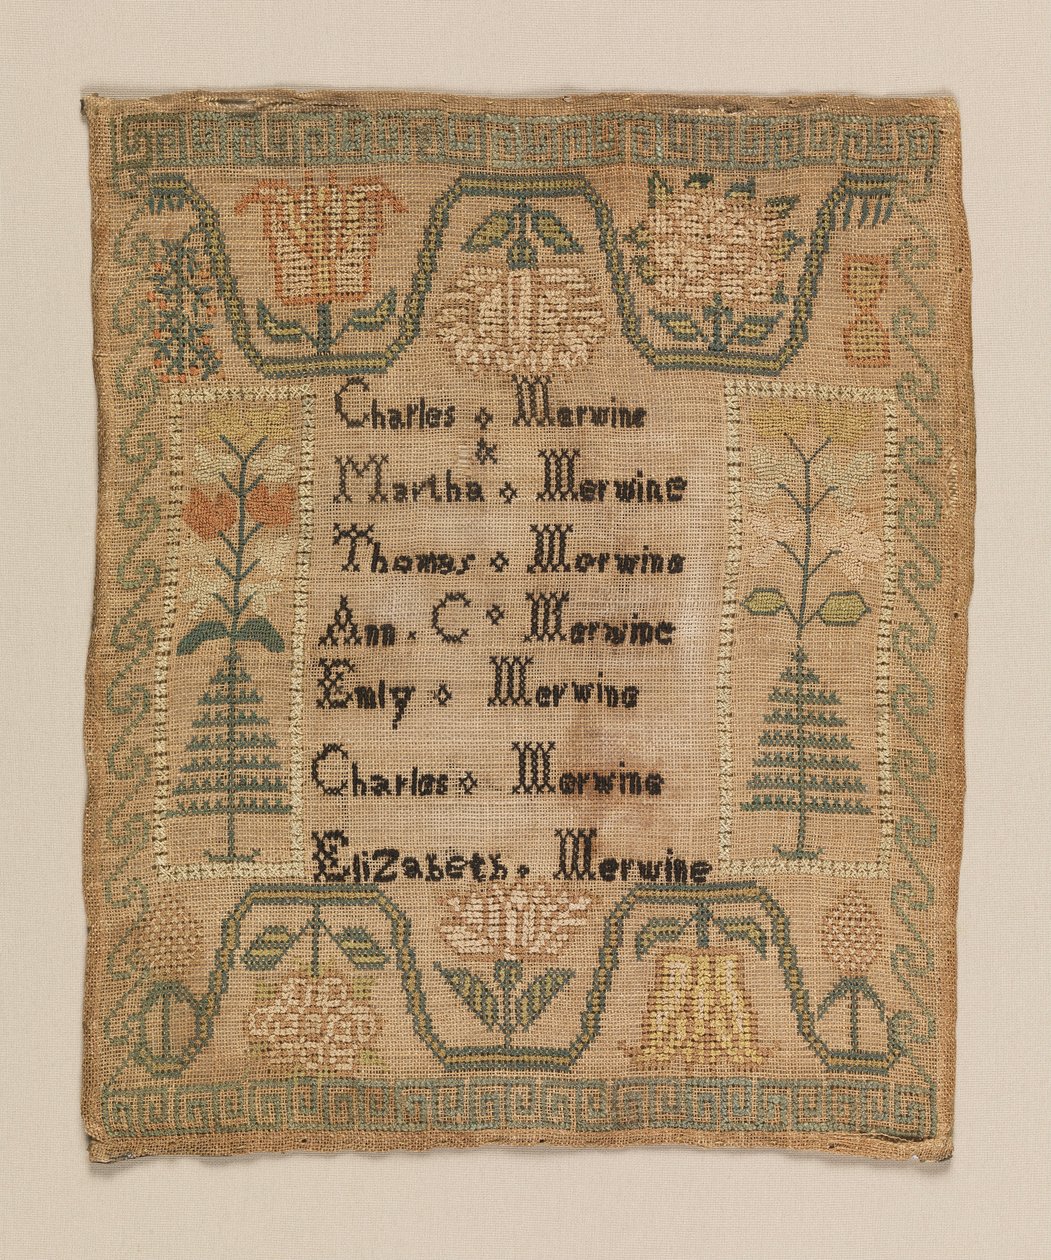 Charles Merwine
&
Martha Merwine
Thomas Merwine
Ann . C Merwine
Emly Merwine
Charles Merwine
EliZabeth Merwine